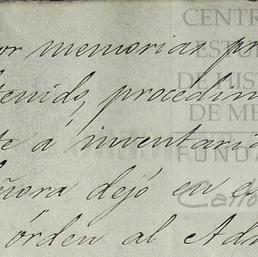 or memorias pr
tenido, procedim
te á inventaria
ñora dejó en e
órden al Adm
CENTR
ESTU
DE HIST
DE ME
FUNDA
Carlo